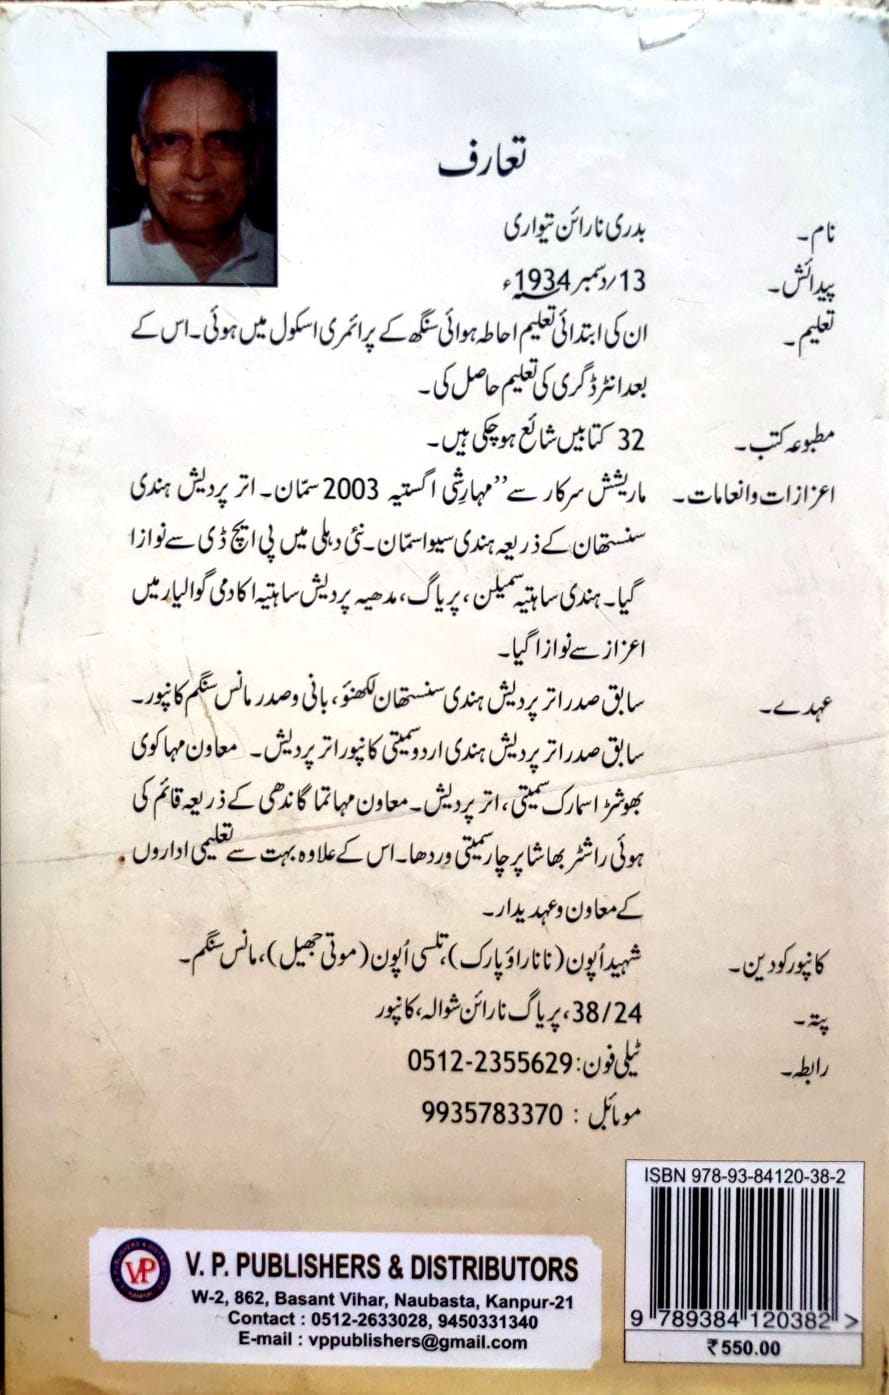 تعارف
نام۔ بدری نارائن تیواری
پیدائش۔ 13/دسمبر 1934ء
تعلیم۔ ان کی ابتدائی تعلیم احاطہ ہوائی سنگھ کے پرائمری اسکول میں ہوئی۔ اس کے
بعد انٹر ڈگری کی تعلیم حاصل کی۔
مطبوعہ کتب۔ 32 کتابیں شائع ہوچکی ہیں۔
اعزازات وانعامات۔ ماریشش سرکار سے ’’مہارشی اگستیہ 2003 سمّان۔ اتر پردیش ہندی
سنستھان کے ذریعہ ہندی سیوا سمّان۔ نئی دہلی میں پی ایچ ڈی سے نوازا
گیا۔ ہندی ساہتیہ سمیلن، پریاگ، مدھیہ پردیش ساہتیہ اکادمی گوالیار میں
اعزاز سے نوازا گیا۔
عہدے۔ سابق صدر اتر پردیش ہندی سنستھان لکھنؤ، بانی وصدر مانس سنگم کانپور۔
سابق صدر اتر پردیش ہندی اردو سمیتی کانپور اتر پردیش۔ معاون مہاکوی
بھوشڑ اسمارک سمیتی، اتر پردیش۔ معاون مہاتما گاندھی کے ذریعہ قائم کی
ہوئی راشٹر بھاشا پرچار سمیتی وردھا۔ اس کے علاوہ بہت سے تعلیمی اداروں
کے معاون وعہدیدار۔
کانپور کو دین۔ شہید اُپون (نانا راؤ پارک)، تلسی اُپون (موتی جھیل)، مانس سنگم۔
پتہ۔ 38/24، پریاگ نارائن شوالہ، کانپور
رابطہ۔ ٹیلی فون: 0512-2355629
موبائل : 9935783370
ISBN 978-93-84120-38-2
9 789384 120382 >
₹ 550.00
VP
V. P. PUBLISHERS & DISTRIBUTORS
W-2, 862, Basant Vihar, Naubasta, Kanpur-21
Contact : 0512-2633028, 9450331340
E-mail : vppublishers@gmail.com